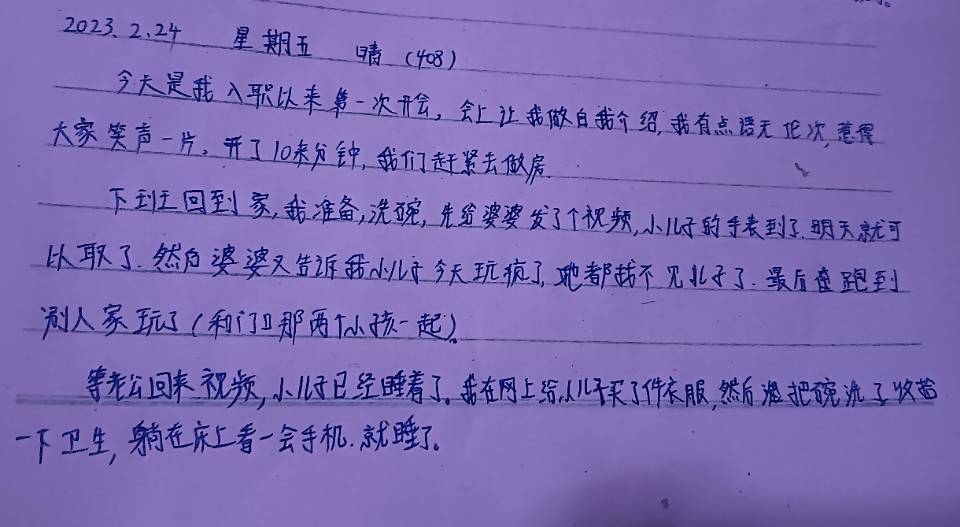 2023.2.24 星期五 晴 (408)
今天是我入职以来第一次开会,会上让我做自我介绍,我有点语无伦次,惹得
大家笑声一片。开了10来分钟,我们赶紧去做房.
下到王回到家,我准备,洗碗,先给婆婆发了个视频,小儿子的手表到了.明天就可
以取了.然后婆婆又告诉我小儿子今天玩疯了,她都找不见儿子了.最后查跑到
别人家玩了(和门口那两个小孩一起)。
等老公回来视频,小儿子已经睡着了。我在网上给儿子买了件衣服,然后把碗洗了收苗
一下卫生,躺在床上看一会手机.就睡了。